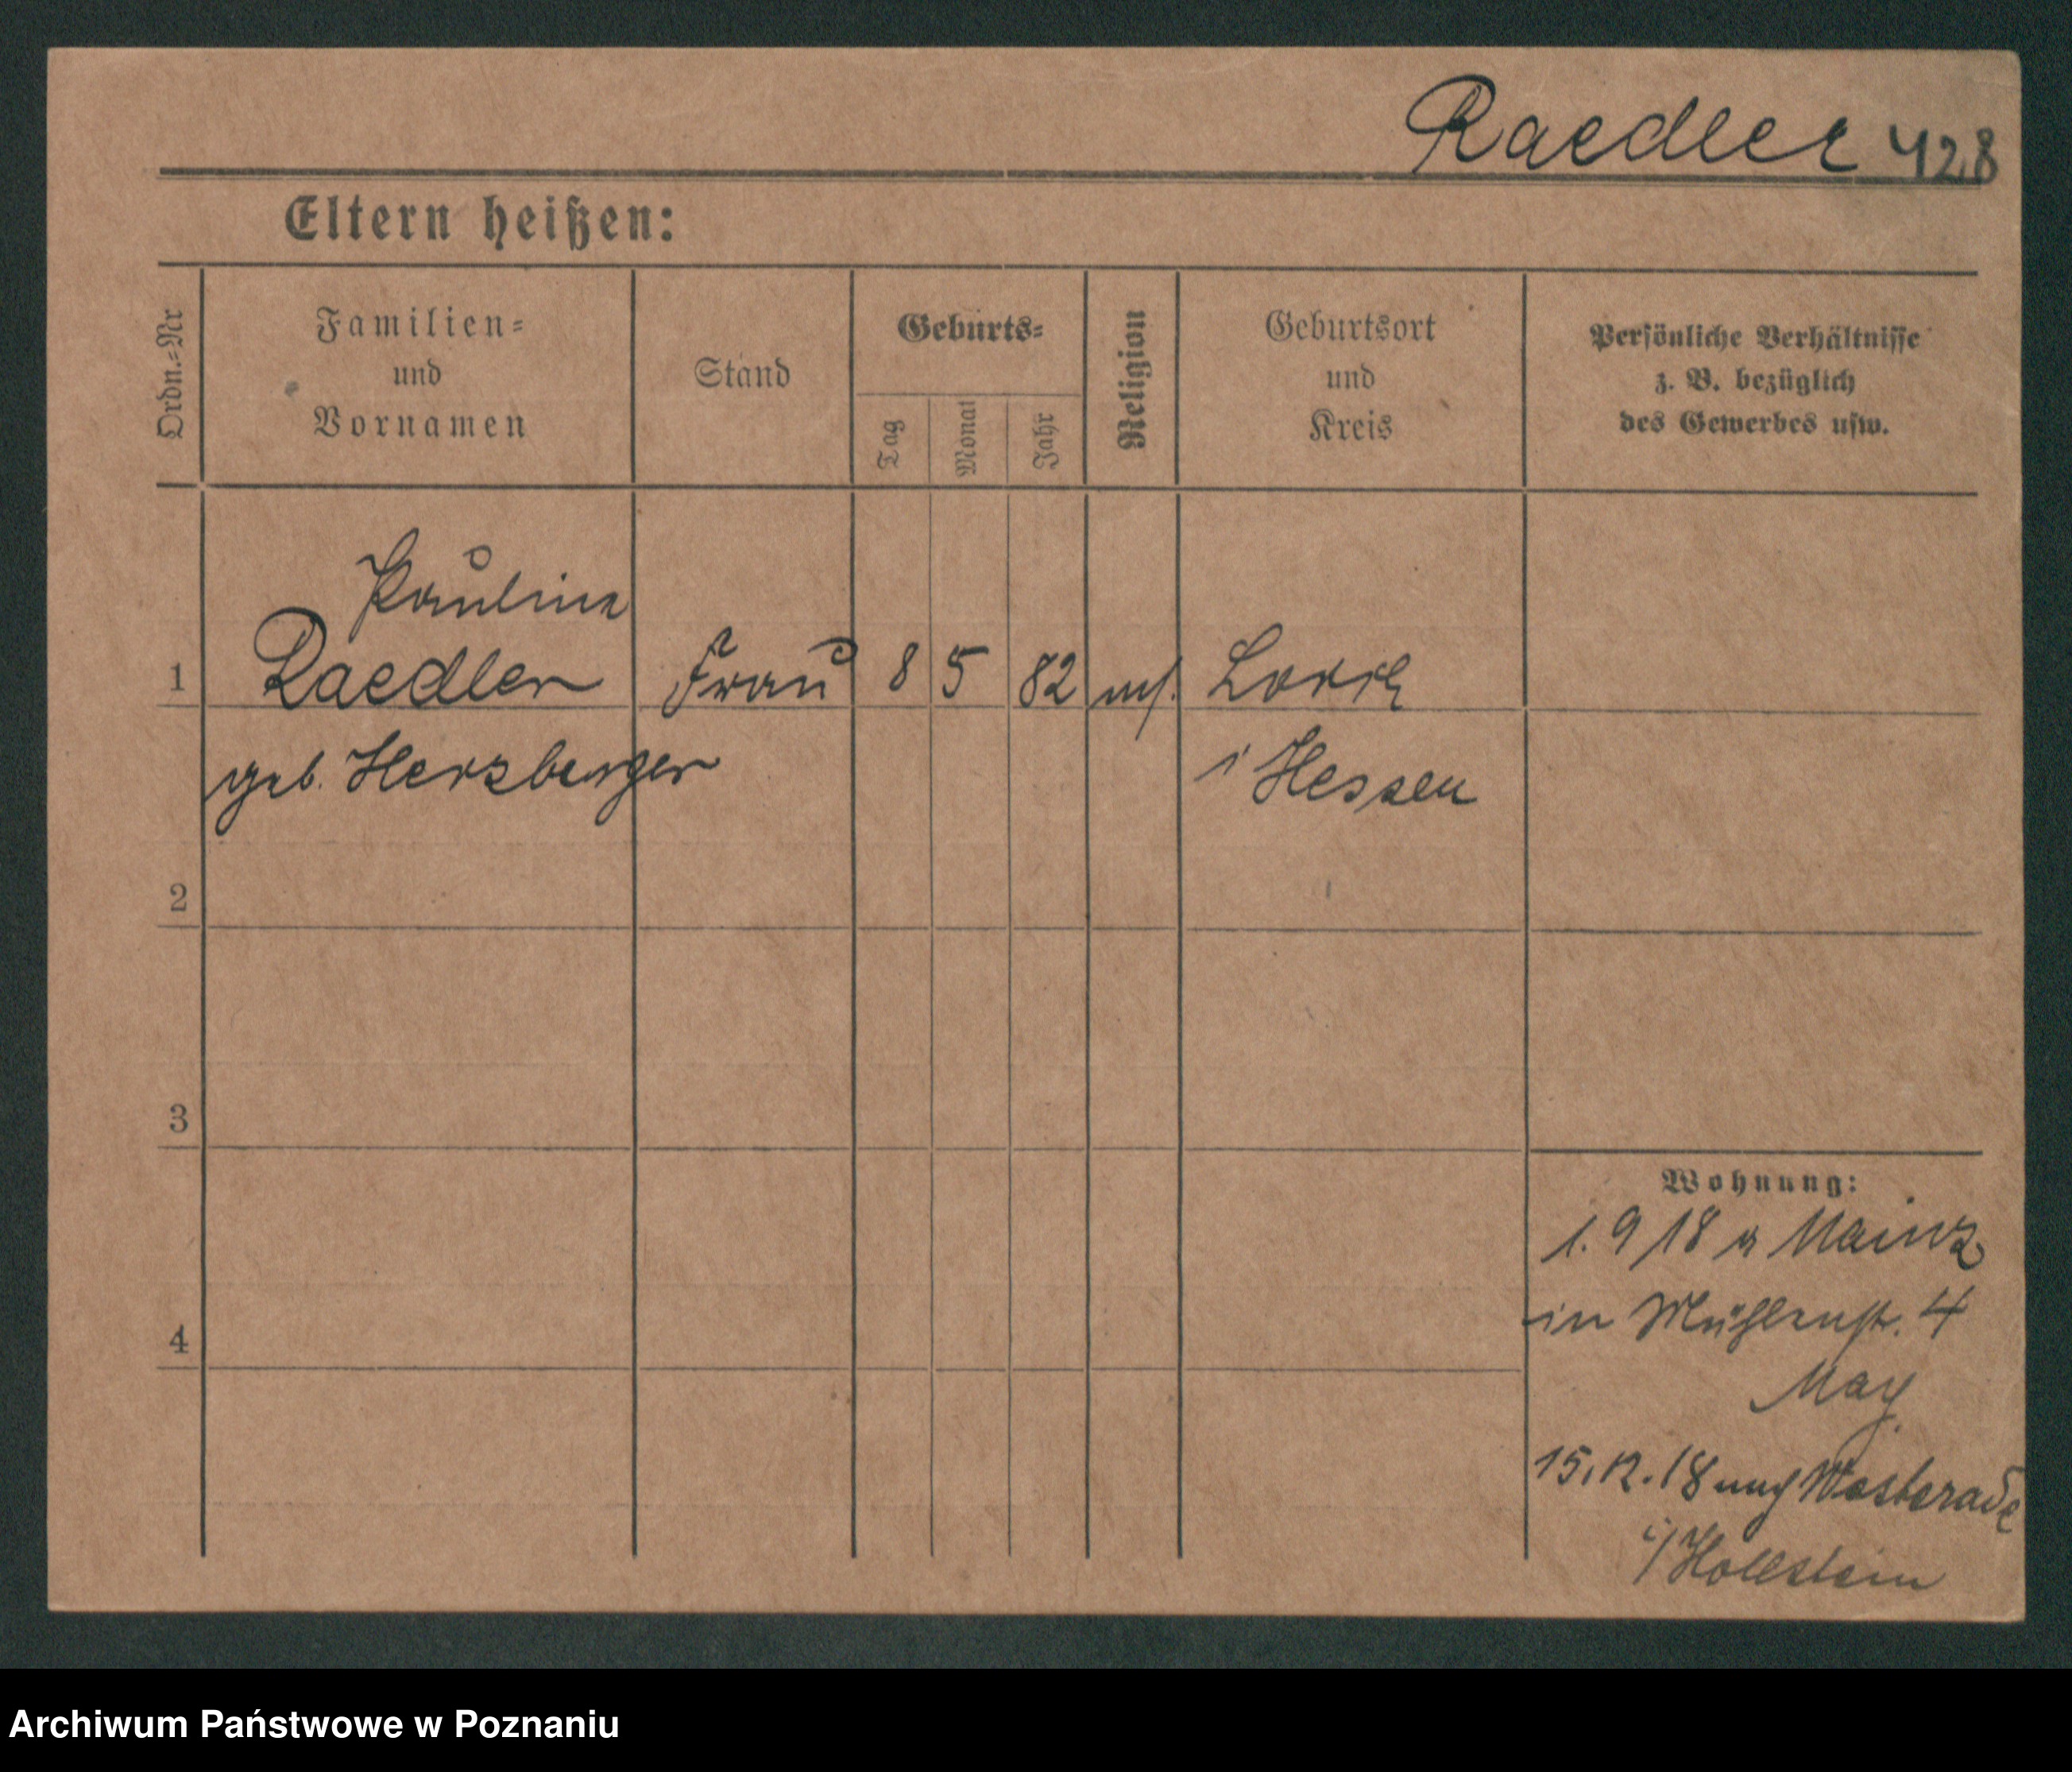 Raedler 428
Eltern heißen:
Ordn.=Nr
Familien=
und
Vornamen
Stand
Geburts=
Tag
Monat
Jahr
Religion
Geburtsort
und
Kreis
Persönliche Verhältnisse
z. B. bezüglich
des Gewerbes usw.
Paulina
1 Raedler Frau 8 5 82 Lorch
geb. Herzberger i Hessen
2
3
Wohnung:
1. 9 18 a Mainz
in Mühlenstr. 4
4
May
15.12.18 nach Westerade
i/Hollstein
Archiwum Państwowe w Poznaniu